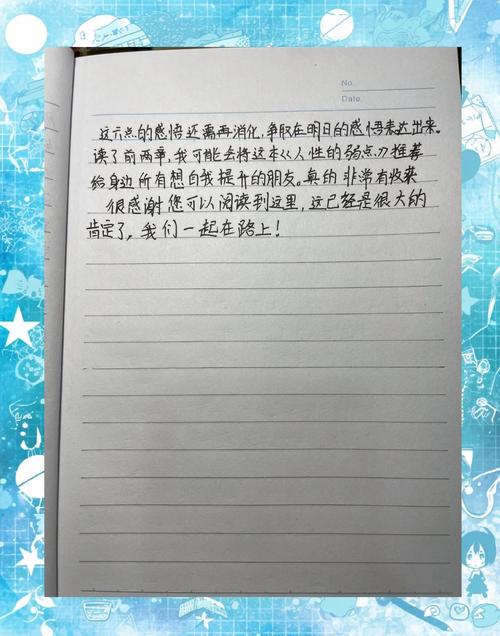 No.
Date.
这六点的感悟还需再消化,争取在明日的感悟表达出来。
读了前两章,我可能会将这本《人性的弱点》推荐
给身边所有想自我提升的朋友。真的非常有收获
很感谢您可以阅读到这里,这已经是很大的
肯定了,我们一起在路上!